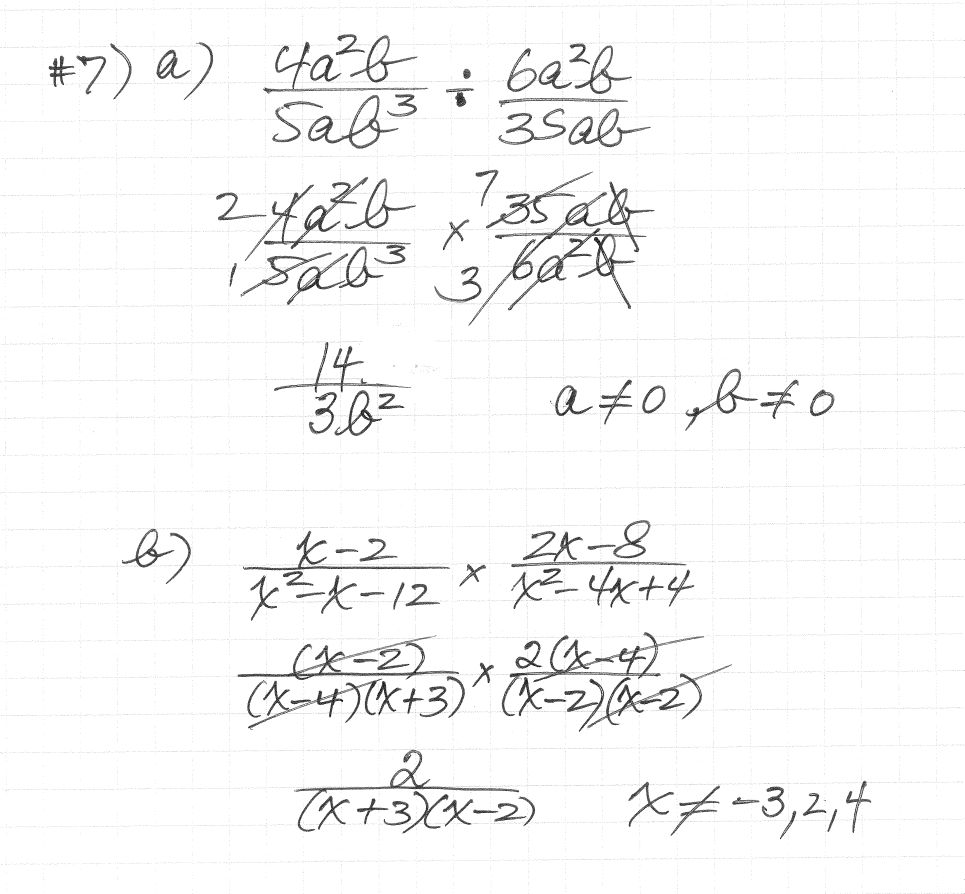 #7) a) 4a²b/5ab³ ÷ 6a²b/35ab
2 4a²b/1 5ab³ × 7 35ab/3 6a²b
14/3b² a ≠ 0, b ≠ 0
b) x-2/x²-x-12 × 2x-8/x²-4x+4
(x-2)/(x-4)(x+3) × 2(x-4)/(x-2)(x-2)
2/(x+3)(x-2) x ≠ -3, 2, 4